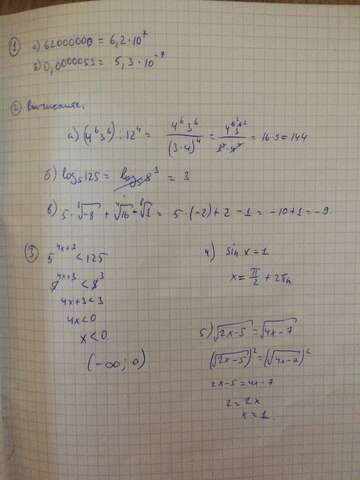 ① а) 62000000 = 6,2·10⁷
б) 0,0000053 = 5,3·10⁻⁷
② вычислите,
а) (4⁶3⁶):12⁴ = 4⁶3⁶/(3·4)⁴ = 4⁶3⁶/3⁴·4⁴ = 16·9 = 144
б) log₅125 = log₅5³ = 3
в) 5·∛-8 + ∜16 - ∛1 = 5·(-2)+2-1 = -10+1 = -9.
③ 5⁴ˣ⁺³ < 125
5⁴ˣ⁺³ < 5³
4x+3<3
4x<0
x<0
(-∞; 0)
4) sin x = 1
x = π/2 + 2πn
5) √2x-5 = √4x-7
(√2x-5)² = (√4x-7)²
2x-5=4x-7
2=2x
x=1.